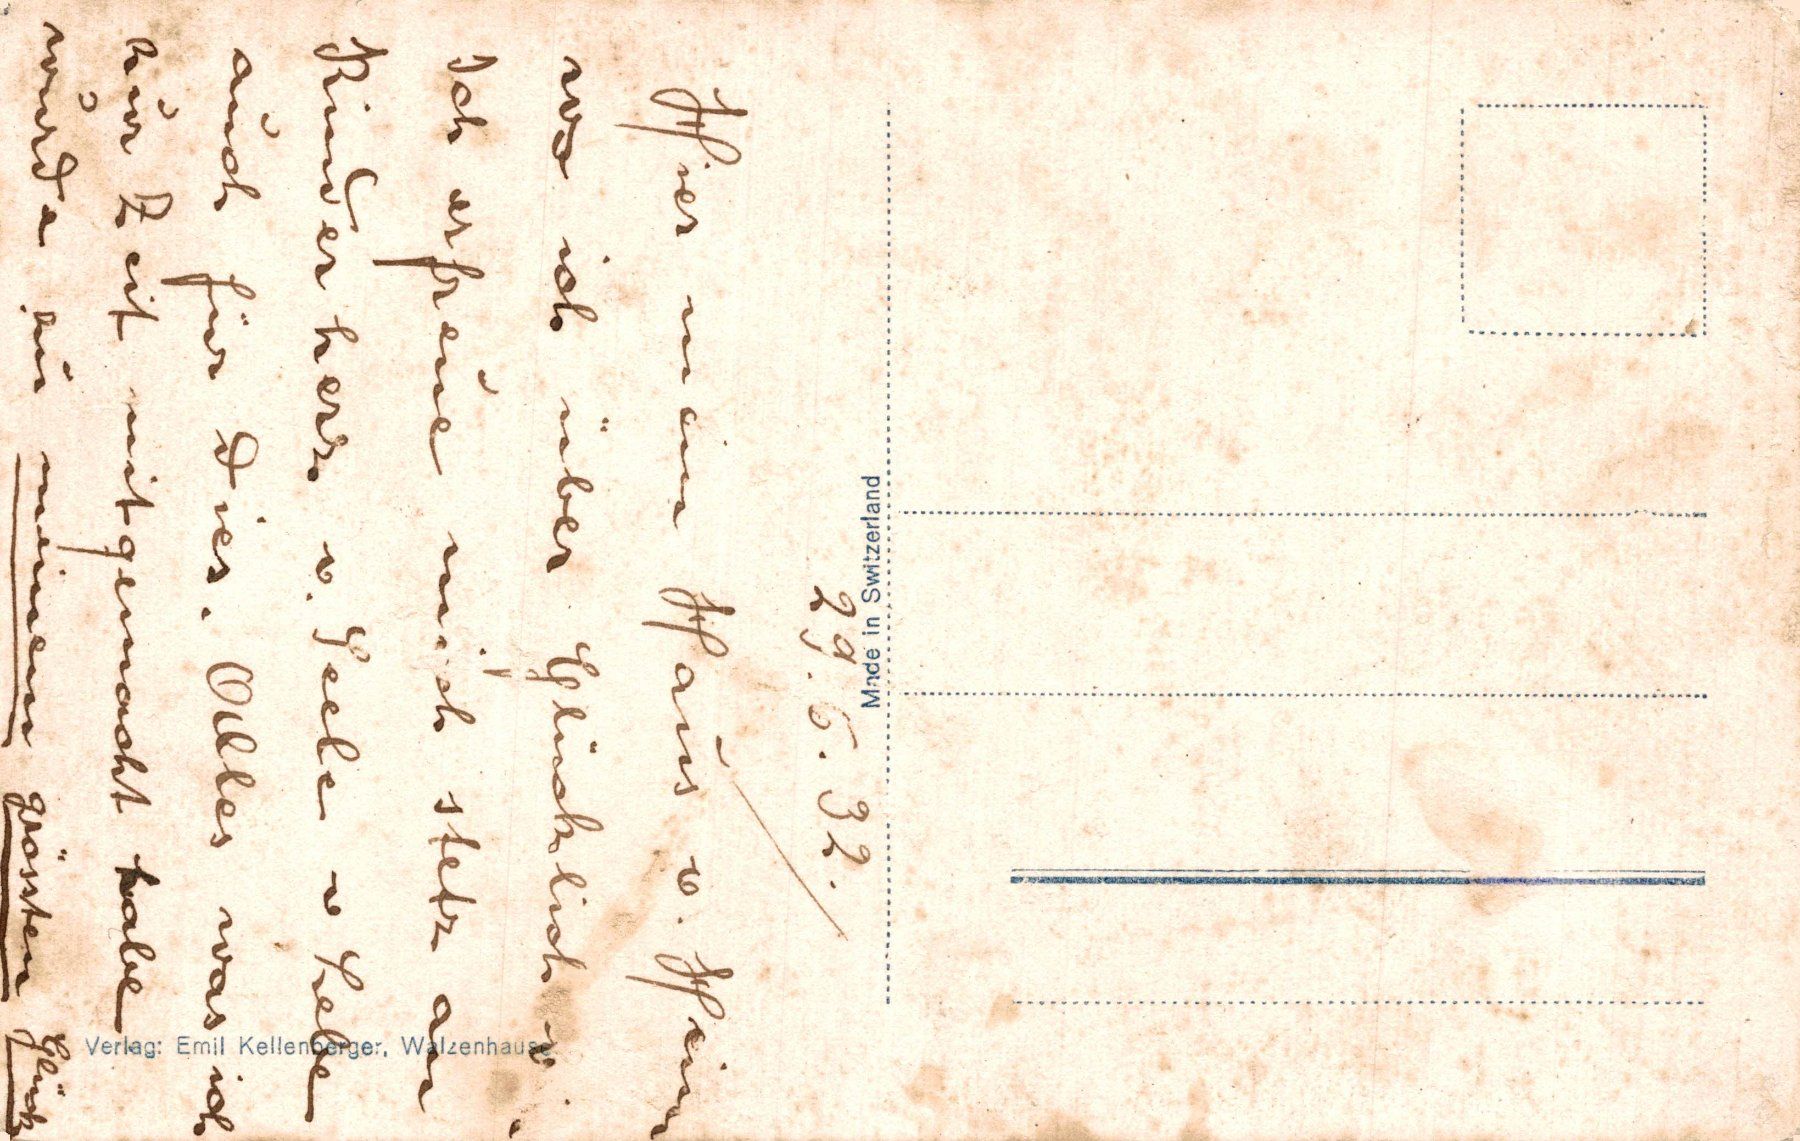 29.6.32.
Hier mein Haus u. Heim
wo ich über Glücklich
Ich erfreue mich stetz an
Kinderherz u. Seele u Lebe
auch für dies. Alles was ich
zur Zeit mitgemacht habe
wurde zu meinem grössten Glück
Made in Switzerland
Verlag: Emil Kellenberger, Walzenhausen